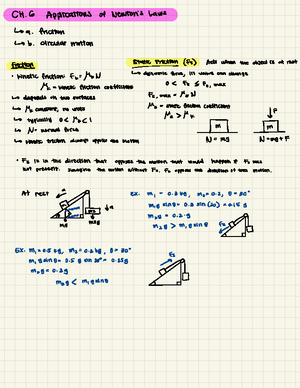 CH. 6 Applications of Newton's Laws
↳ a. friction
↳ b. circular motion
Friction
• Kinetic friction: Fk = μk N
μk = kinetic friction coefficient
↳ depends on two surfaces
↳ μk constant, no units
↳ typically 0 < μk < 1
↳ N = normal force
↳ kinetic friction always opposes the motion
Static Friction (Fs) Acts when the object is at rest
↳ dynamic force, its value can change
0 < Fs ≤ Fs, max
Fs, max = μs N
μs = static friction coefficient
μs > μk
m
N = mg
F
m
N = mg + F
• Fs is in the direction that opposes the motion that would happen if Fs was
not present. Imagine the motion without Fs. Fs opposes the direction of that motion.
At rest
a
m1
m2
a
Ex: m1 = 0.3 kg, m2 = 0.2, θ = 30°
m1 g sin θ = 0.3 sin (30) = 0.15 g
m2 g = 0.2 · g
m2 g > m1 g sin θ
Fs
Ex: m1 = 0.5 kg, m2 = 0.2 kg, θ = 30°
m1 g sin θ = 0.5 g sin 30° = 0.25g
m2 g = 0.2g
m2 g < m1 g sin θ
Fs